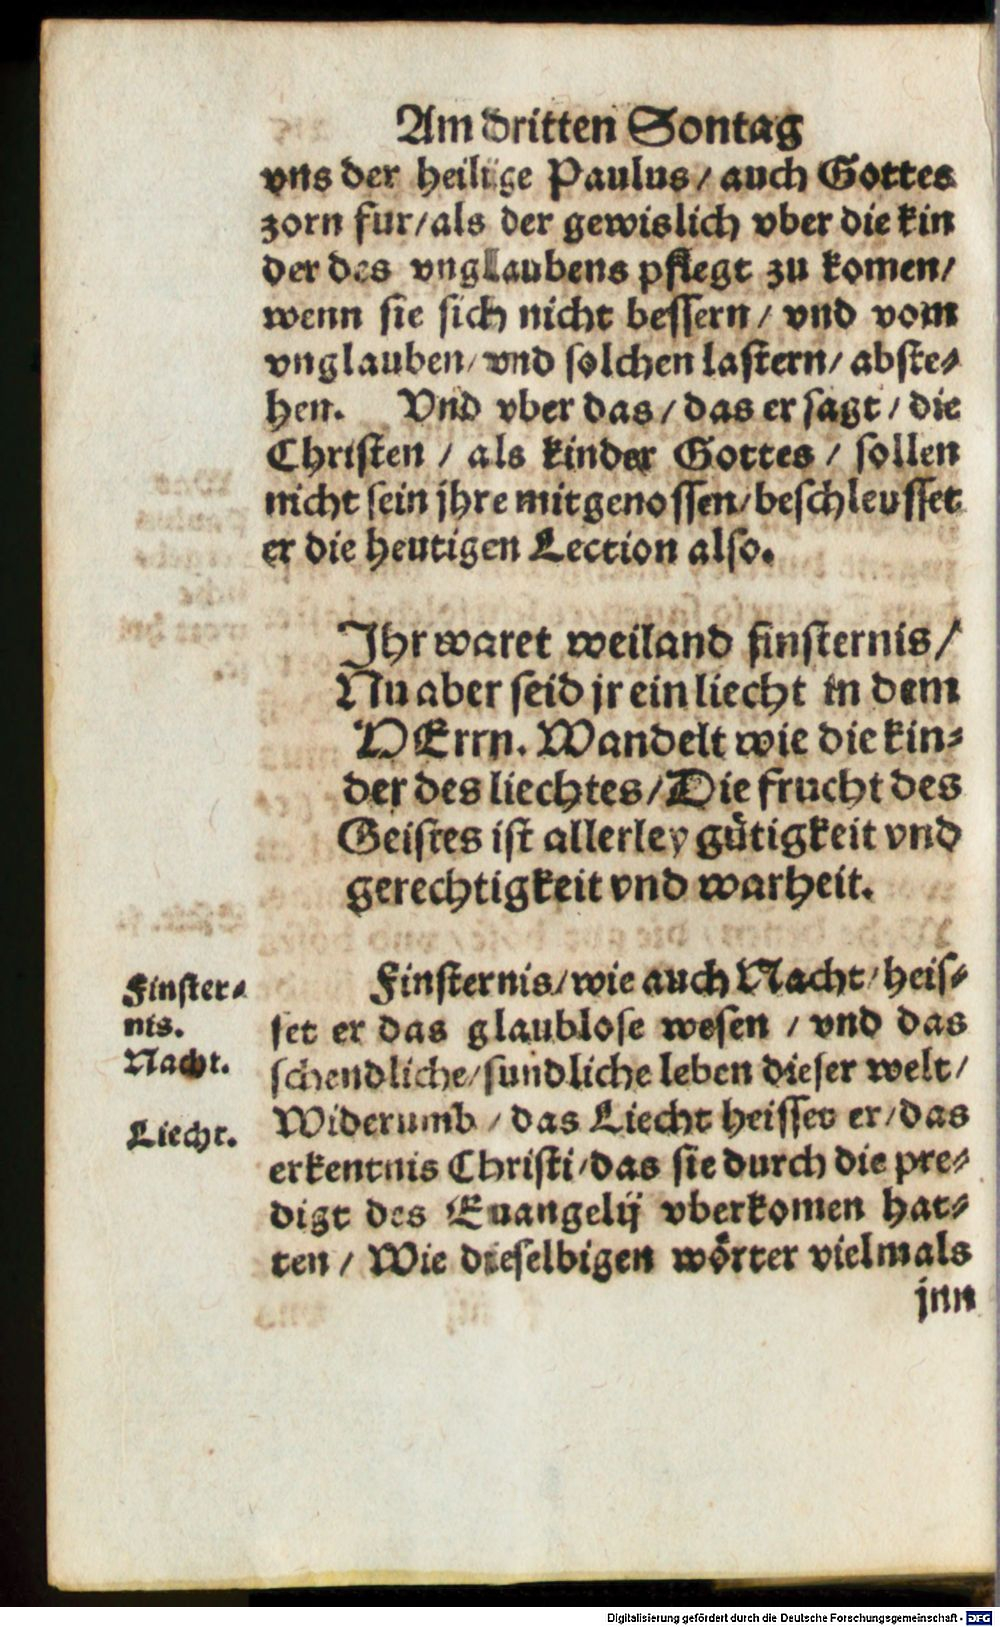 Am dritten Sontag
vns der heilige Paulus / auch Gottes
zorn fur / als der gewislich vber die kin
der des vnglaubens pflegt zu komen /
wenn sie sich nicht bessern / vnd vom
vnglauben / vnd solchen lastern / abste-
hen. Vnd vber das / das er sagt / die
Christen / als kinder Gottes / sollen
nicht sein jhre mitgenossen / beschleusset
er die heutigen Lection also.
Jhr waret weiland finsternis /
Nu aber seid jr ein liecht in dem
HErrn. Wandelt wie die kin-
der des liechtes / Die frucht des
Geistes ist allerley gütigkeit vnd
gerechtigkeit vnd warheit.
Finster-
nis.
Nacht.
Liecht.
Finsternis / wie auch Nacht / heis-
set er das glaublose wesen / vnd das
schendliche / sundliche leben dieser welt /
Widerumb / das Liecht heisset er / das
erkentnis Christi / das sie durch die pre-
digt des Euangelij vberkomen hat-
ten / Wie dieselbigen wörter vielmals
jnn
Digitalisierung gefördert durch die Deutsche Forschungsgemeinschaft - DFG